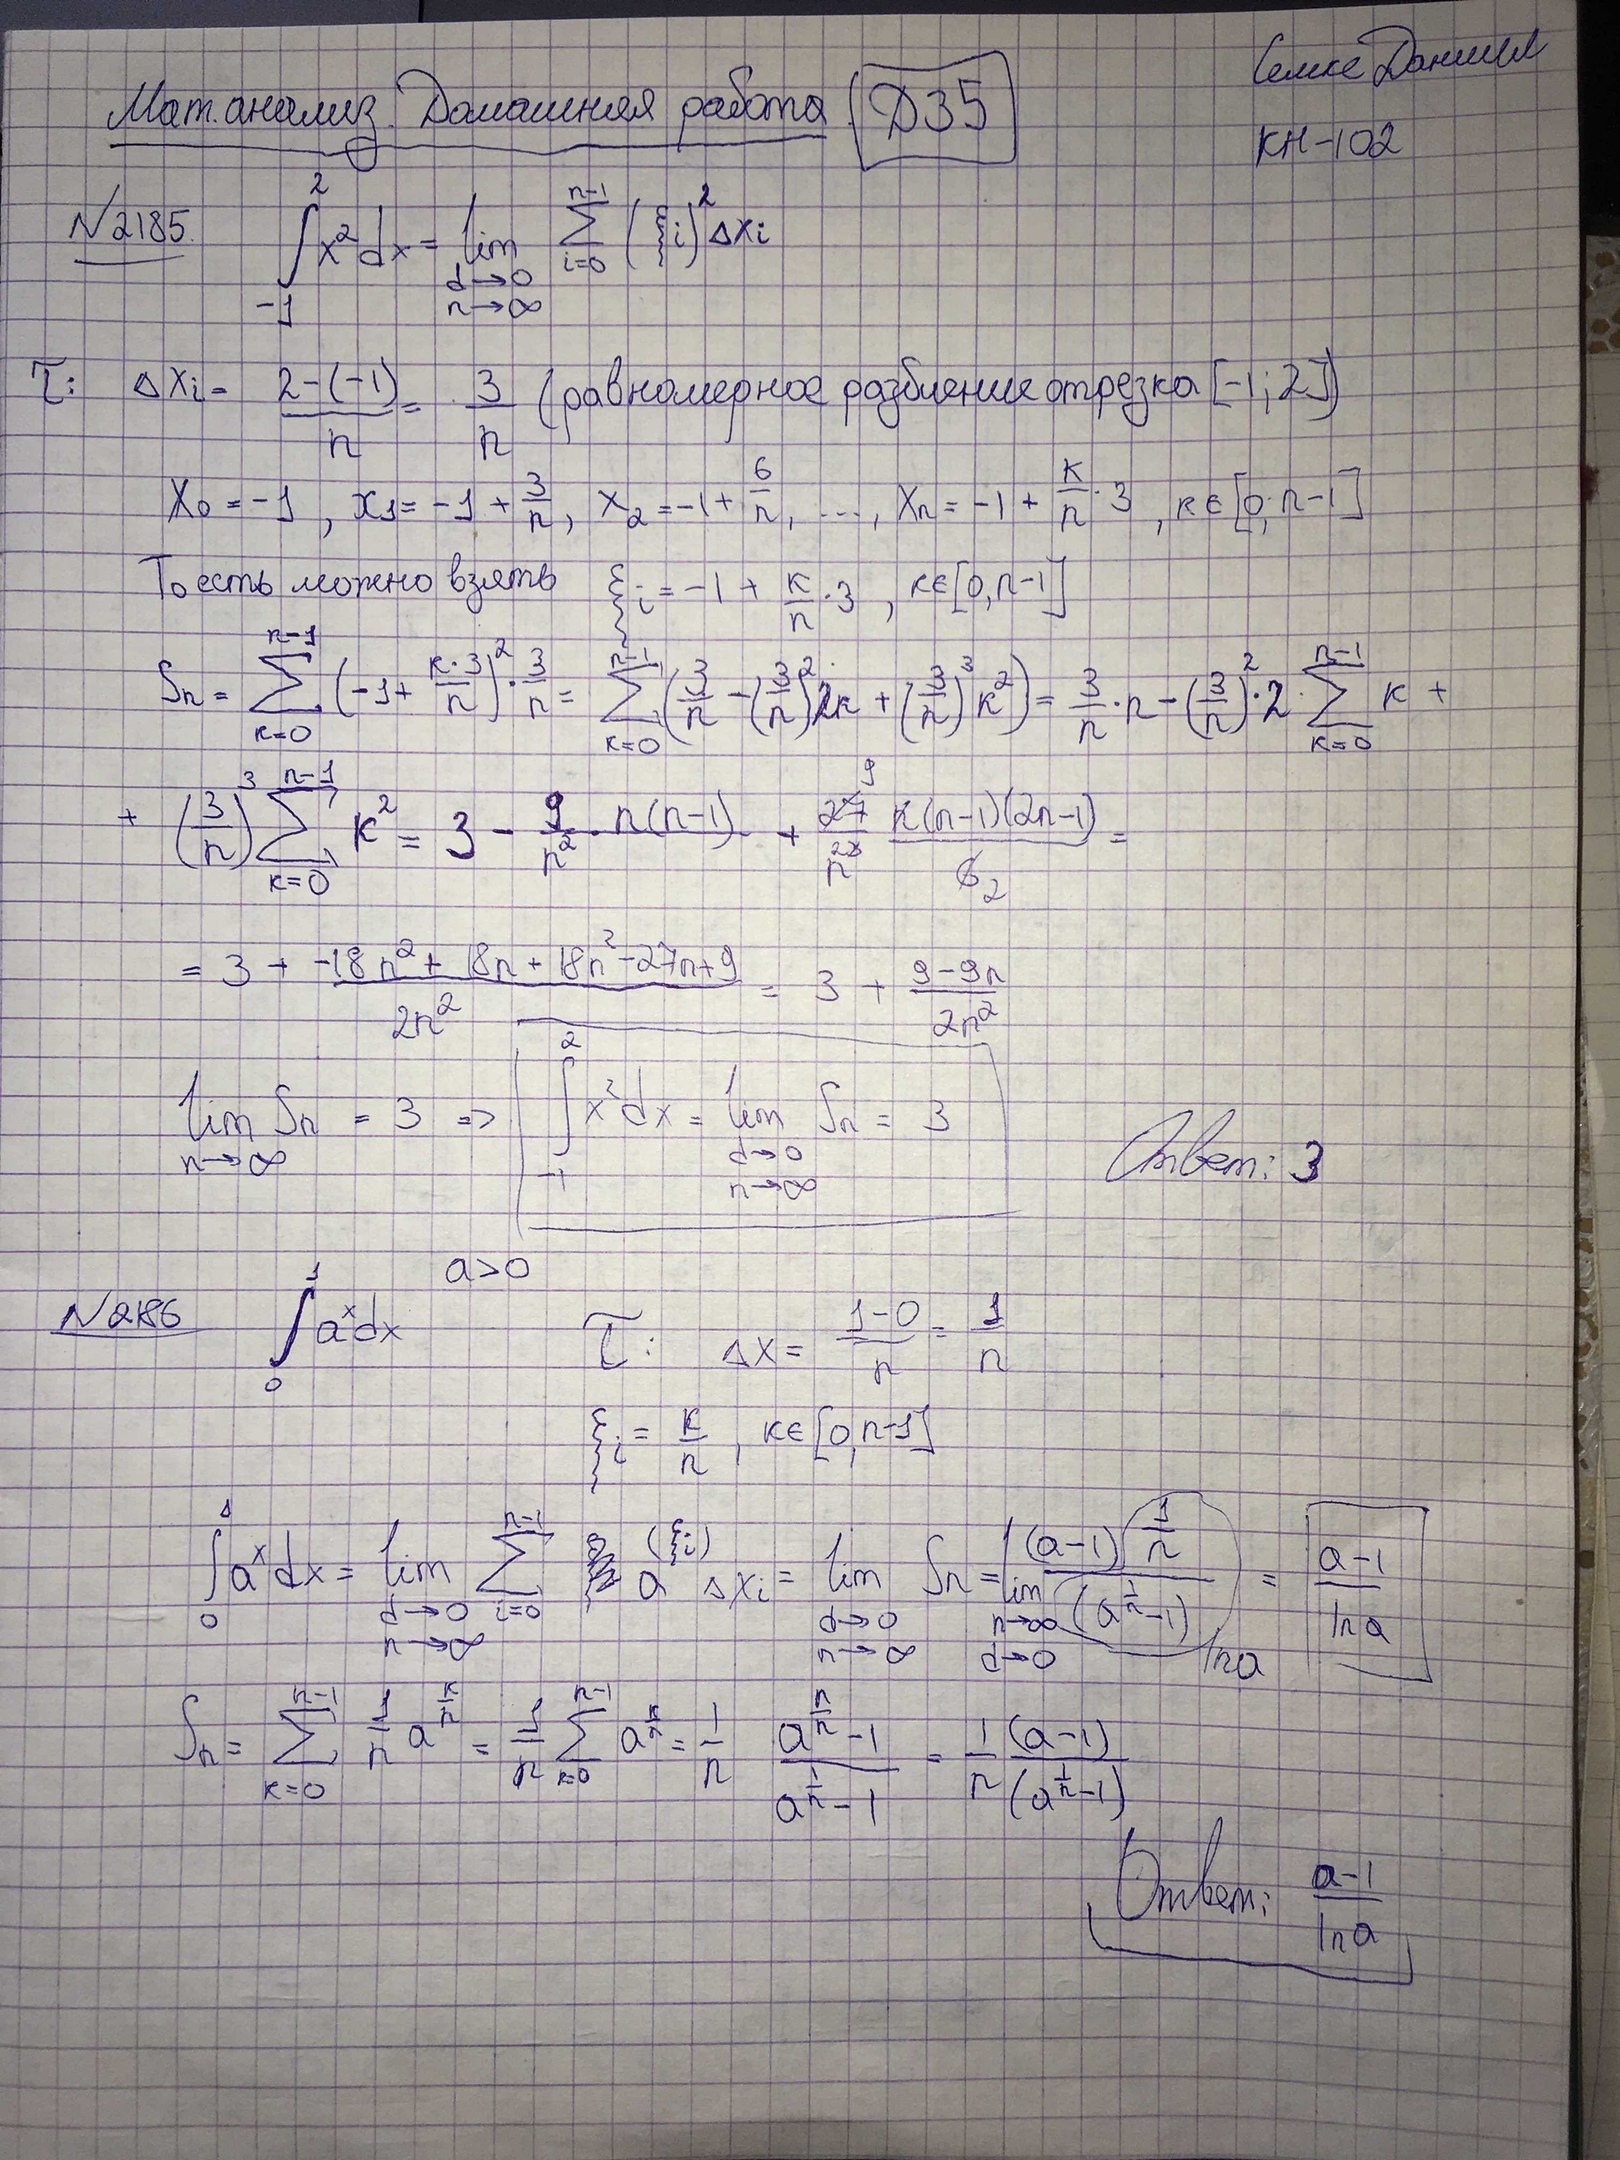 Семке Даниил
Мат. анализ. Домашняя работа ДЗ5
КН-102
N2185. ∫_{-1}^{2} x² dx = lim_{d→0, n→∞} ∑_{i=0}^{n-1} (ξi)² Δxi
τ: Δxi = (2-(-1))/n = 3/n (равномерное разбиение отрезка [-1; 2])
x₀ = -1, x₁ = -1 + 3/n, x₂ = -1 + 6/n, ..., xn = -1 + k/n · 3, k∈[0, n-1]
То есть можно взять ξi = -1 + k/n · 3, k∈[0, n-1]
Sn = ∑_{k=0}^{n-1} (-1 + k·3/n)² · 3/n = ∑_{k=0}^{n-1} (3/n - (3/n)² 2k + (3/n)³ k²) = 3/n · n - (3/n)² · 2 · ∑_{k=0}^{n-1} k +
+ (3/n)³ ∑_{k=0}^{n-1} k² = 3 - 9/n² · n(n-1) + 27/n³ · n(n-1)(2n-1)/6 =
= 3 + (-18n² + 18n + 18n² - 27n + 9)/(2n²) = 3 + (9-9n)/(2n²)
lim_{n→∞} Sn = 3 => ∫_{-1}^{2} x² dx = lim_{d→0, n→∞} Sn = 3
Ответ: 3
a>0
N2186 ∫_{0}^{1} a^x dx τ: Δx = (1-0)/n = 1/n
ξi = k/n, k∈[0, n-1]
∫_{0}^{1} a^x dx = lim_{d→0, n→∞} ∑_{i=0}^{n-1} a^(ξi) Δxi = lim_{d→0, n→∞} Sn = lim_{n→∞, d→0} (a-1) (1/n)/(a^{1/n}-1) = (a-1)/ln a
ln a
Sn = ∑_{k=0}^{n-1} 1/n a^{k/n} = 1/n ∑_{k=0}^{n-1} a^{k/n} = 1/n (a^{n/n}-1)/(a^{1/n}-1) = 1/n (a-1)/(a^{1/n}-1)
Ответ: (a-1)/ln a